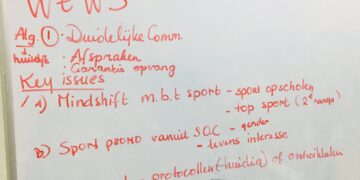 Alg. ① : Duidelijke Comm.
: Afspraken
: Garantis opvang
Key issues
1) Mindshift m.b.t sport - sport opscholen
- top sport (2e rangs)
b) Sport promo vanuit SOC - gender
- levens interesse
protocollen (huidig) of ontwikkelen